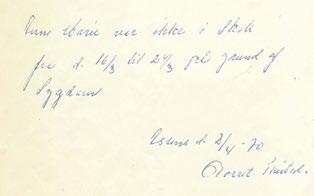 Anne Marie var ikke i Skole
fra d. 16/3 til 24/3 på grund af
Sygdom
Assens d. 2/4 - 70
Dorrit